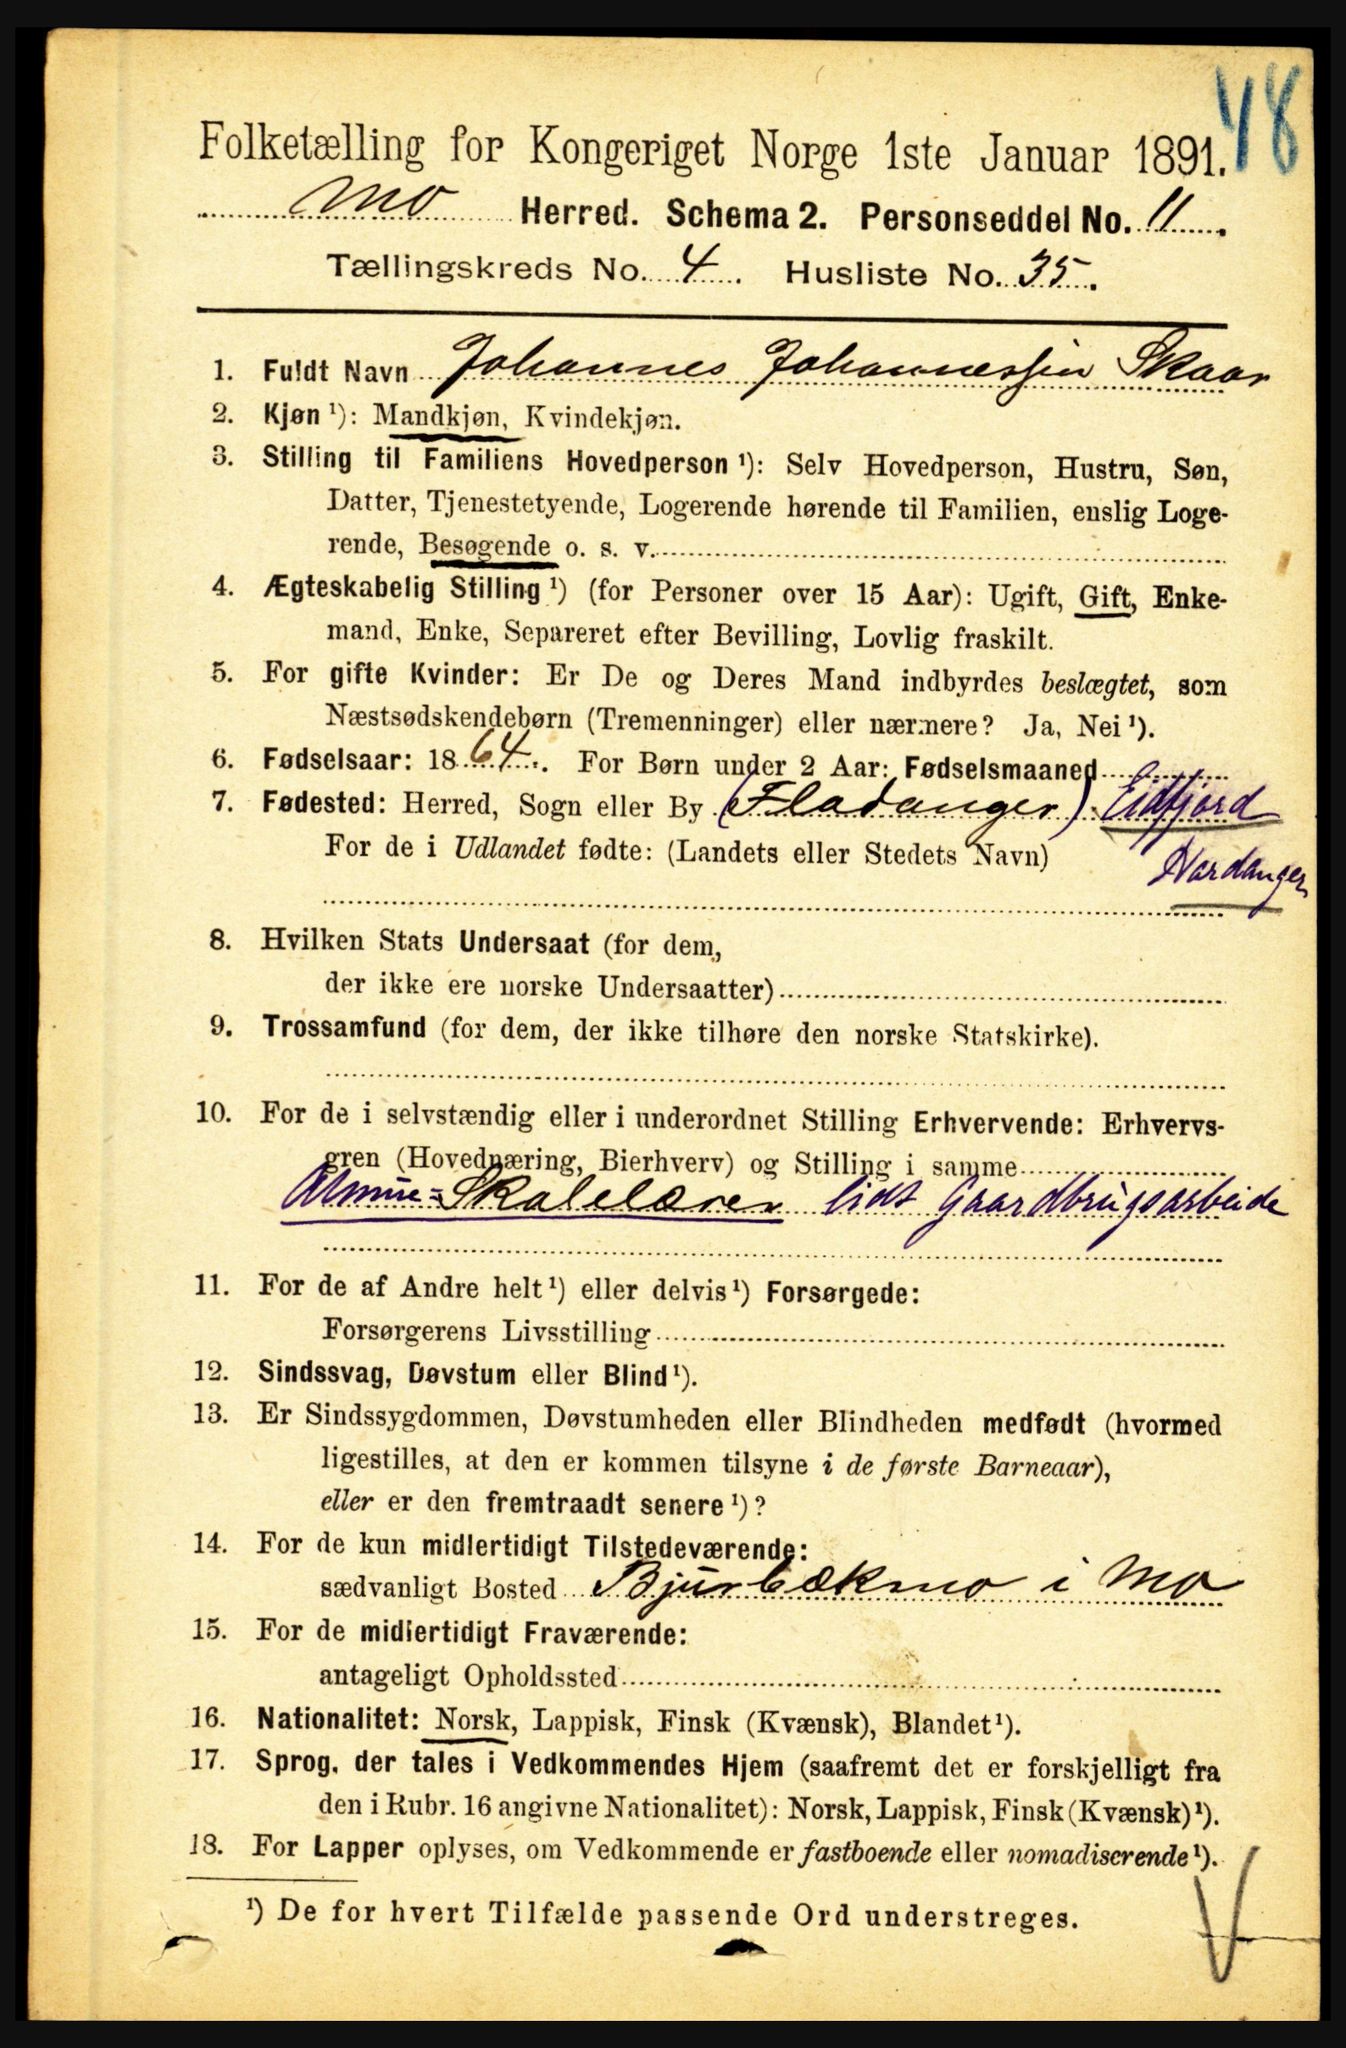 48
Folketælling for Kongeriget Norge 1ste Januar 1891.
Mo Herred. Schema 2. Personseddel No. 11.
Tællingskreds No. 4. Husliste No. 35.
1. Fuldt Navn Johannes Johannessen Skaar
2. Kjøn ¹): Mandkjøn, Kvindekjøn.
3. Stilling til Familiens Hovedperson ¹): Selv Hovedperson, Hustru, Søn,
Datter, Tjenestetyende, Logerende hørende til Familien, enslig Loge-
rende, Besøgende o. s. v.
4. Ægteskabelig Stilling ¹) (for Personer over 15 Aar): Ugift, Gift, Enke-
mand, Enke, Separeret efter Bevilling, Lovlig fraskilt.
5. For gifte Kvinder: Er De og Deres Mand indbyrdes beslægtet, som
Næstsødskendebørn (Tremenninger) eller nærmere? Ja, Nei ¹).
6. Fødselsaar: 1864. For Børn under 2 Aar: Fødselsmaaned
7. Fødested: Herred, Sogn eller By (Fladanger) Eidfjord
For de i Udlandet fødte: (Landets eller Stedets Navn) Hardanger
8. Hvilken Stats Undersaat (for dem,
der ikke ere norske Undersaatter)
9. Trossamfund (for dem, der ikke tilhøre den norske Statskirke).
10. For de i selvstændig eller i underordnet Stilling Erhvervende: Erhvervs-
gren (Hovednæring, Bierhverv) og Stilling i samme
Almue=Skolelærer lidt Gaardbrugsarbeide
11. For de af Andre helt ¹) eller delvis ¹) Forsørgede:
Forsørgerens Livsstilling
12. Sindssvag, Døvstum eller Blind ¹).
13. Er Sindssygdommen, Døvstumheden eller Blindheden medfødt (hvormed
ligestilles, at den er kommen tilsyne i de første Barneaar),
eller er den fremtraadt senere ¹)?
14. For de kun midlertidigt Tilstedeværende:
sædvanligt Bosted Bjurbækmo i Mo
15. For de midlertidigt Fraværende:
antageligt Opholdssted
16. Nationalitet: Norsk, Lappisk, Finsk (Kvænsk), Blandet ¹).
17. Sprog, der tales i Vedkommendes Hjem (saafremt det er forskjelligt fra
den i Rubr. 16 angivne Nationalitet): Norsk, Lappisk, Finsk (Kvænsk) ¹).
18. For Lapper oplyses, om Vedkommende er fastboende eller nomadiserende ¹).
¹) De for hvert Tilfælde passende Ord understreges.